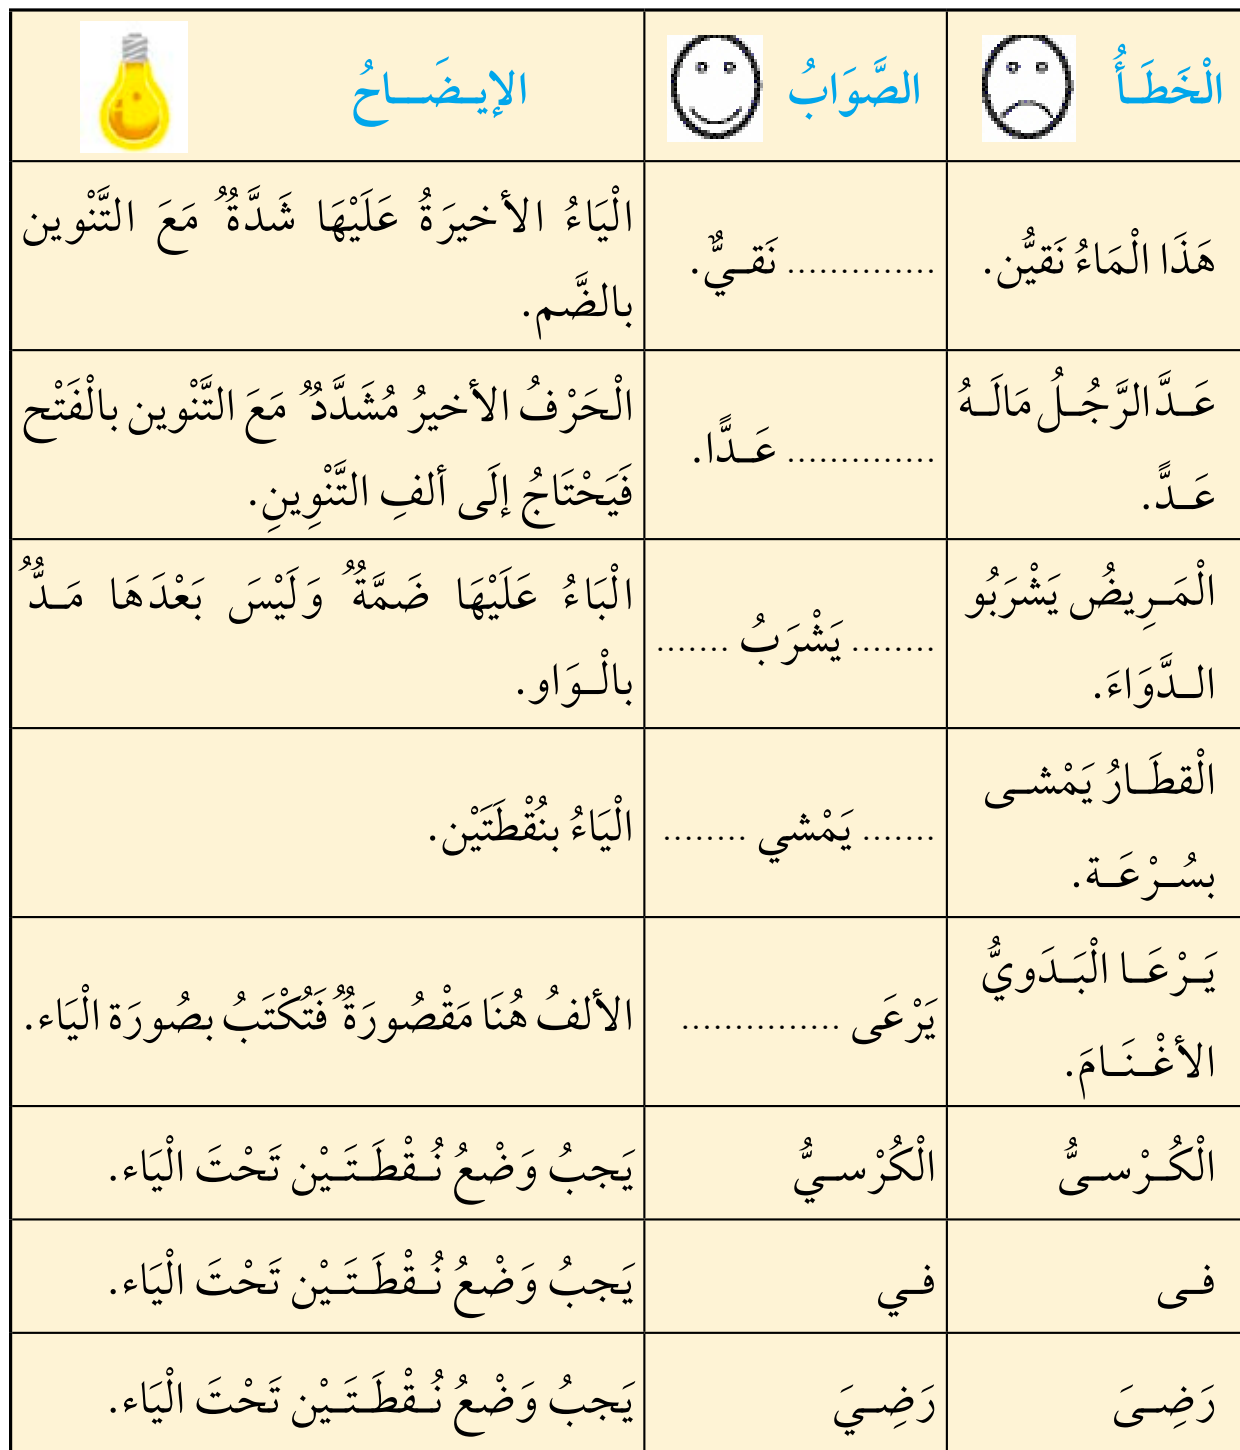 الْخَطَـأُ
الصَّوَابُ
الإيـضَـــاحُ
هَذَا الْمَاءُ نَقيُّن.
.............. نَقـيٌّ.
الْيَاءُ الأخيرَةُ عَلَيْهَا شَدَّةٌ مَعَ التَّنْوين
بالضَّم.
عَـدَّ الرَّجُـلُ مَالَـهُ
عَـدًّ.
.............. عَـدًّا.
الْحَرْفُ الأخيرُ مُشَدَّدٌ مَعَ التَّنْوين بالْفَتْح
فَيَحْتَاجُ إلَى ألفِ التَّنْوِينِ.
الْمَـرِيضُ يَشْرَبُو
الـدَّوَاءَ.
........ يَشْرَبُ .......
الْبَاءُ عَلَيْهَا ضَمَّةٌ وَلَيْسَ بَعْدَهَا مَـدٌّ
بالْـوَاو.
الْقطَـارُ يَمْشـى
بسُـرْعَـة.
....... يَمْشي ........
الْيَاءُ بنُقْطَتَيْن.
يَـرْعَـا الْبَـدَويُّ
الأغْـنَـامَ.
يَرْعَى ...............
الألفُ هُنَا مَقْصُورَةٌ فَتُكْتَبُ بصُورَة الْيَاء.
الْكُـرْسـىُّ
الْكُرْسـيُّ
يَجبُ وَضْعُ نُـقْطَـتَـيْن تَحْتَ الْيَاء.
فـى
فـي
يَجبُ وَضْعُ نُـقْطَـتَـيْن تَحْتَ الْيَاء.
رَضِـىَ
رَضِـيَ
يَجبُ وَضْعُ نُـقْطَـتَـيْن تَحْتَ الْيَاء.